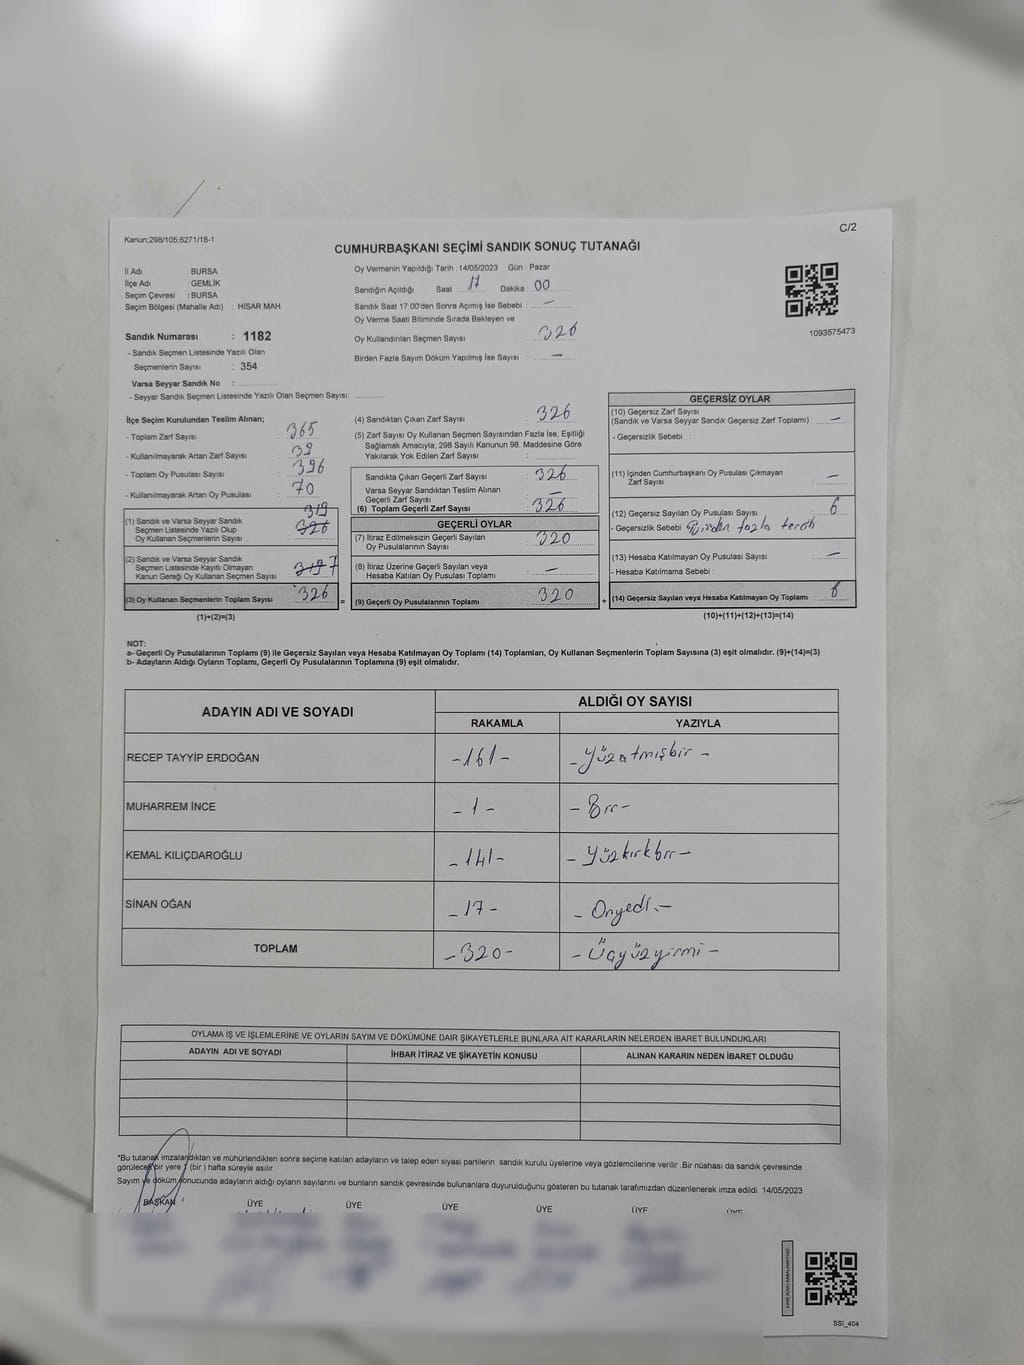 C/2
Kanun;298/105;6271/18-1
CUMHURBAŞKANI SEÇİMİ SANDIK SONUÇ TUTANAĞI
İl Adı : BURSA
İlçe Adı : GEMLİK
Seçim Çevresi : BURSA
Seçim Bölgesi (Mahalle Adı) : HİSAR MAH
Sandık Numarası : 1182
- Sandık Seçmen Listesinde Yazılı Olan
Seçmenlerin Sayısı : 354
Varsa Seyyar Sandık No :
- Seyyar Sandık Seçmen Listesinde Yazılı Olan Seçmen Sayısı:
Oy Vermenin Yapıldığı Tarih :14/05/2023 Gün : Pazar
Sandığın Açıldığı Saat 17 Dakika : 00
Sandık Saat 17:00'den Sonra Açımış İse Sebebi : —
Oy Verme Saati Bitiminde Sırada Bekleyen ve
Oy Kullandırılan Seçmen Sayısı : 326
Birden Fazla Sayım Döküm Yapılmış İse Sayısı : —
1093575473
İlçe Seçim Kurulundan Teslim Alınan;
- Toplam Zarf Sayısı : 365
- Kullanılmayarak Artan Zarf Sayısı : 39
- Toplam Oy Pusulası Sayısı : 396
- Kullanılmayarak Artan Oy Pusulası : 70
319
(1) Sandık ve Varsa Seyyar Sandık
Seçmen Listesinde Yazılı Olup
Oy Kullanan Seçmenlerin Sayısı : 326
(2) Sandık ve Varsa Seyyar Sandık
Seçmen Listesinde Kayıtlı Olmayan
Kanun Gereği Oy Kullanan Seçmen Sayısı : 319 7
(3) Oy Kullanan Seçmenlerin Toplam Sayısı : 326 =
(1)+(2)=(3)
(4) Sandıktan Çıkan Zarf Sayısı : 326
(5) Zarf Sayısı Oy Kullanan Seçmen Sayısından Fazla İse, Eşitliği
Sağlamak Amacıyla; 298 Sayılı Kanunun 98. Maddesine Göre
Yakılarak Yok Edilen Zarf Sayısı :
Sandıkta Çıkan Geçerli Zarf Sayısı : 326
Varsa Seyyar Sandıktan Teslim Alınan
Geçerli Zarf Sayısı : —
(6) Toplam Geçerli Zarf Sayısı : 326
GEÇERLİ OYLAR
(7) İtiraz Edilmeksizin Geçerli Sayılan
Oy Pusulalarının Sayısı : 320
(8) İtiraz Üzerine Geçerli Sayılan veya
Hesaba Katılan Oy Pusulası Toplamı : —
(9) Geçerli Oy Pusulalarının Toplamı : 320 +
GEÇERSİZ OYLAR
(10) Geçersiz Zarf Sayısı
(Sandık ve Varsa Seyyar Sandık Geçersiz Zarf Toplamı) : —
- Geçersizlik Sebebi :
(11) İçinden Cumhurbaşkanı Oy Pusulası Çıkmayan
Zarf Sayısı : —
(12) Geçersiz Sayılan Oy Pusulası Sayısı : 6
- Geçersizlik Sebebi Birden fazla tercih
(13) Hesaba Katılmayan Oy Pusulası Sayısı : —
- Hesaba Katılmama Sebebi :
(14) Geçersiz Sayılan veya Hesaba Katılmayan Oy Toplamı : 6
(10)+(11)+(12)+(13)=(14)
NOT:
a- Geçerli Oy Pusulalarının Toplamı (9) ile Geçersiz Sayılan veya Hesaba Katılmayan Oy Toplamı (14) Toplamları, Oy Kullanan Seçmenlerin Toplam Sayısına (3) eşit olmalıdır. (9)+(14)=(3)
b- Adayların Aldığı Oyların Toplamı, Geçerli Oy Pusulalarının Toplamına (9) eşit olmalıdır.
ADAYIN ADI VE SOYADI
ALDIĞI OY SAYISI
RAKAMLA YAZIYLA
RECEP TAYYİP ERDOĞAN -161- -Yüzatmışbir-
MUHARREM İNCE -1- -Bir-
KEMAL KILIÇDAROĞLU -141- -Yüzkırkbir-
SİNAN OĞAN -17- -Onyedi.-
TOPLAM -320- -Üçyüzyirmi-
OYLAMA İŞ VE İŞLEMLERİNE VE OYLARIN SAYIM VE DÖKÜMÜNE DAİR ŞİKAYETLERLE BUNLARA AİT KARARLARIN NELERDEN İBARET BULUNDUKLARI
ADAYIN ADI VE SOYADI İHBAR İTİRAZ VE ŞİKAYETİN KONUSU ALINAN KARARIN NEDEN İBARET OLDUĞU
*Bu tutanak imzalandıktan ve mühürlendikten sonra seçime katılan adayların ve talep eden siyasi partilerin sandık kurulu üyelerine veya gözlemcilerine verilir .Bir nüshası da sandık çevresinde
görülecek bir yere 1 (bir ) hafta süreyle asılır.
Sayım ve döküm sonucunda adayların aldığı oyların sayılarını ve bunların sandık çevresinde bulunanlara duyurulduğunu gösteren bu tutanak tarafımızdan düzenlenerek imza edildi. 14/05/2023
BAŞKAN ÜYE ÜYE ÜYE ÜYE ÜYE ÜYE
SSI_404